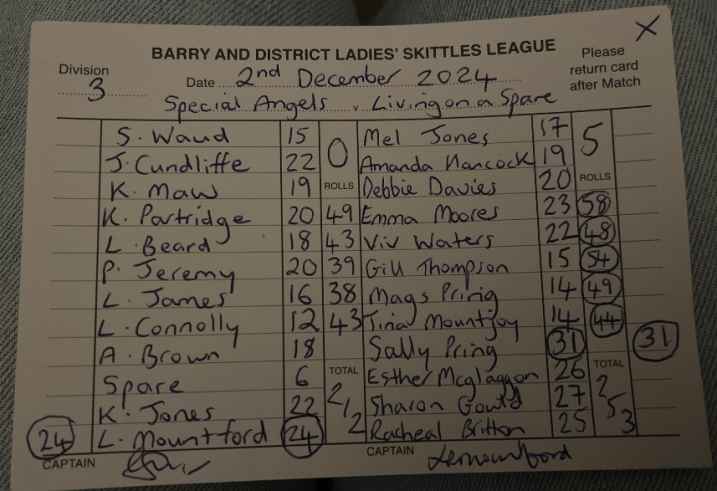 X
BARRY AND DISTRICT LADIES' SKITTLES LEAGUE
Please return card after Match
Division 3
Date 2nd December 2024
Special Angels v Living on a Spare
S. Waud 15 0 Mel Jones 17 5
J. Cundliffe 22 Amanda Hancock 19
K. Maw 19 ROLLS Debbie Davies 20 ROLLS
K. Partridge 20 49 Emma Moores 23 58
L. Beard 18 43 Viv Waters 22 48
P. Jeremy 20 39 Gill Thompson 15 54
L. James 16 38 Mags Pring 14 49
L. Connolly 12 43 Tina Mountjoy 14 44
A. Brown 18 Sally Pring 31 31
Spare 6 TOTAL Esther Mcglaggon 26 TOTAL
K. Jones 22 212 Sharon Gould 27 253
24 L. Mountford 24 Racheal Britton 25
CAPTAIN CAPTAIN